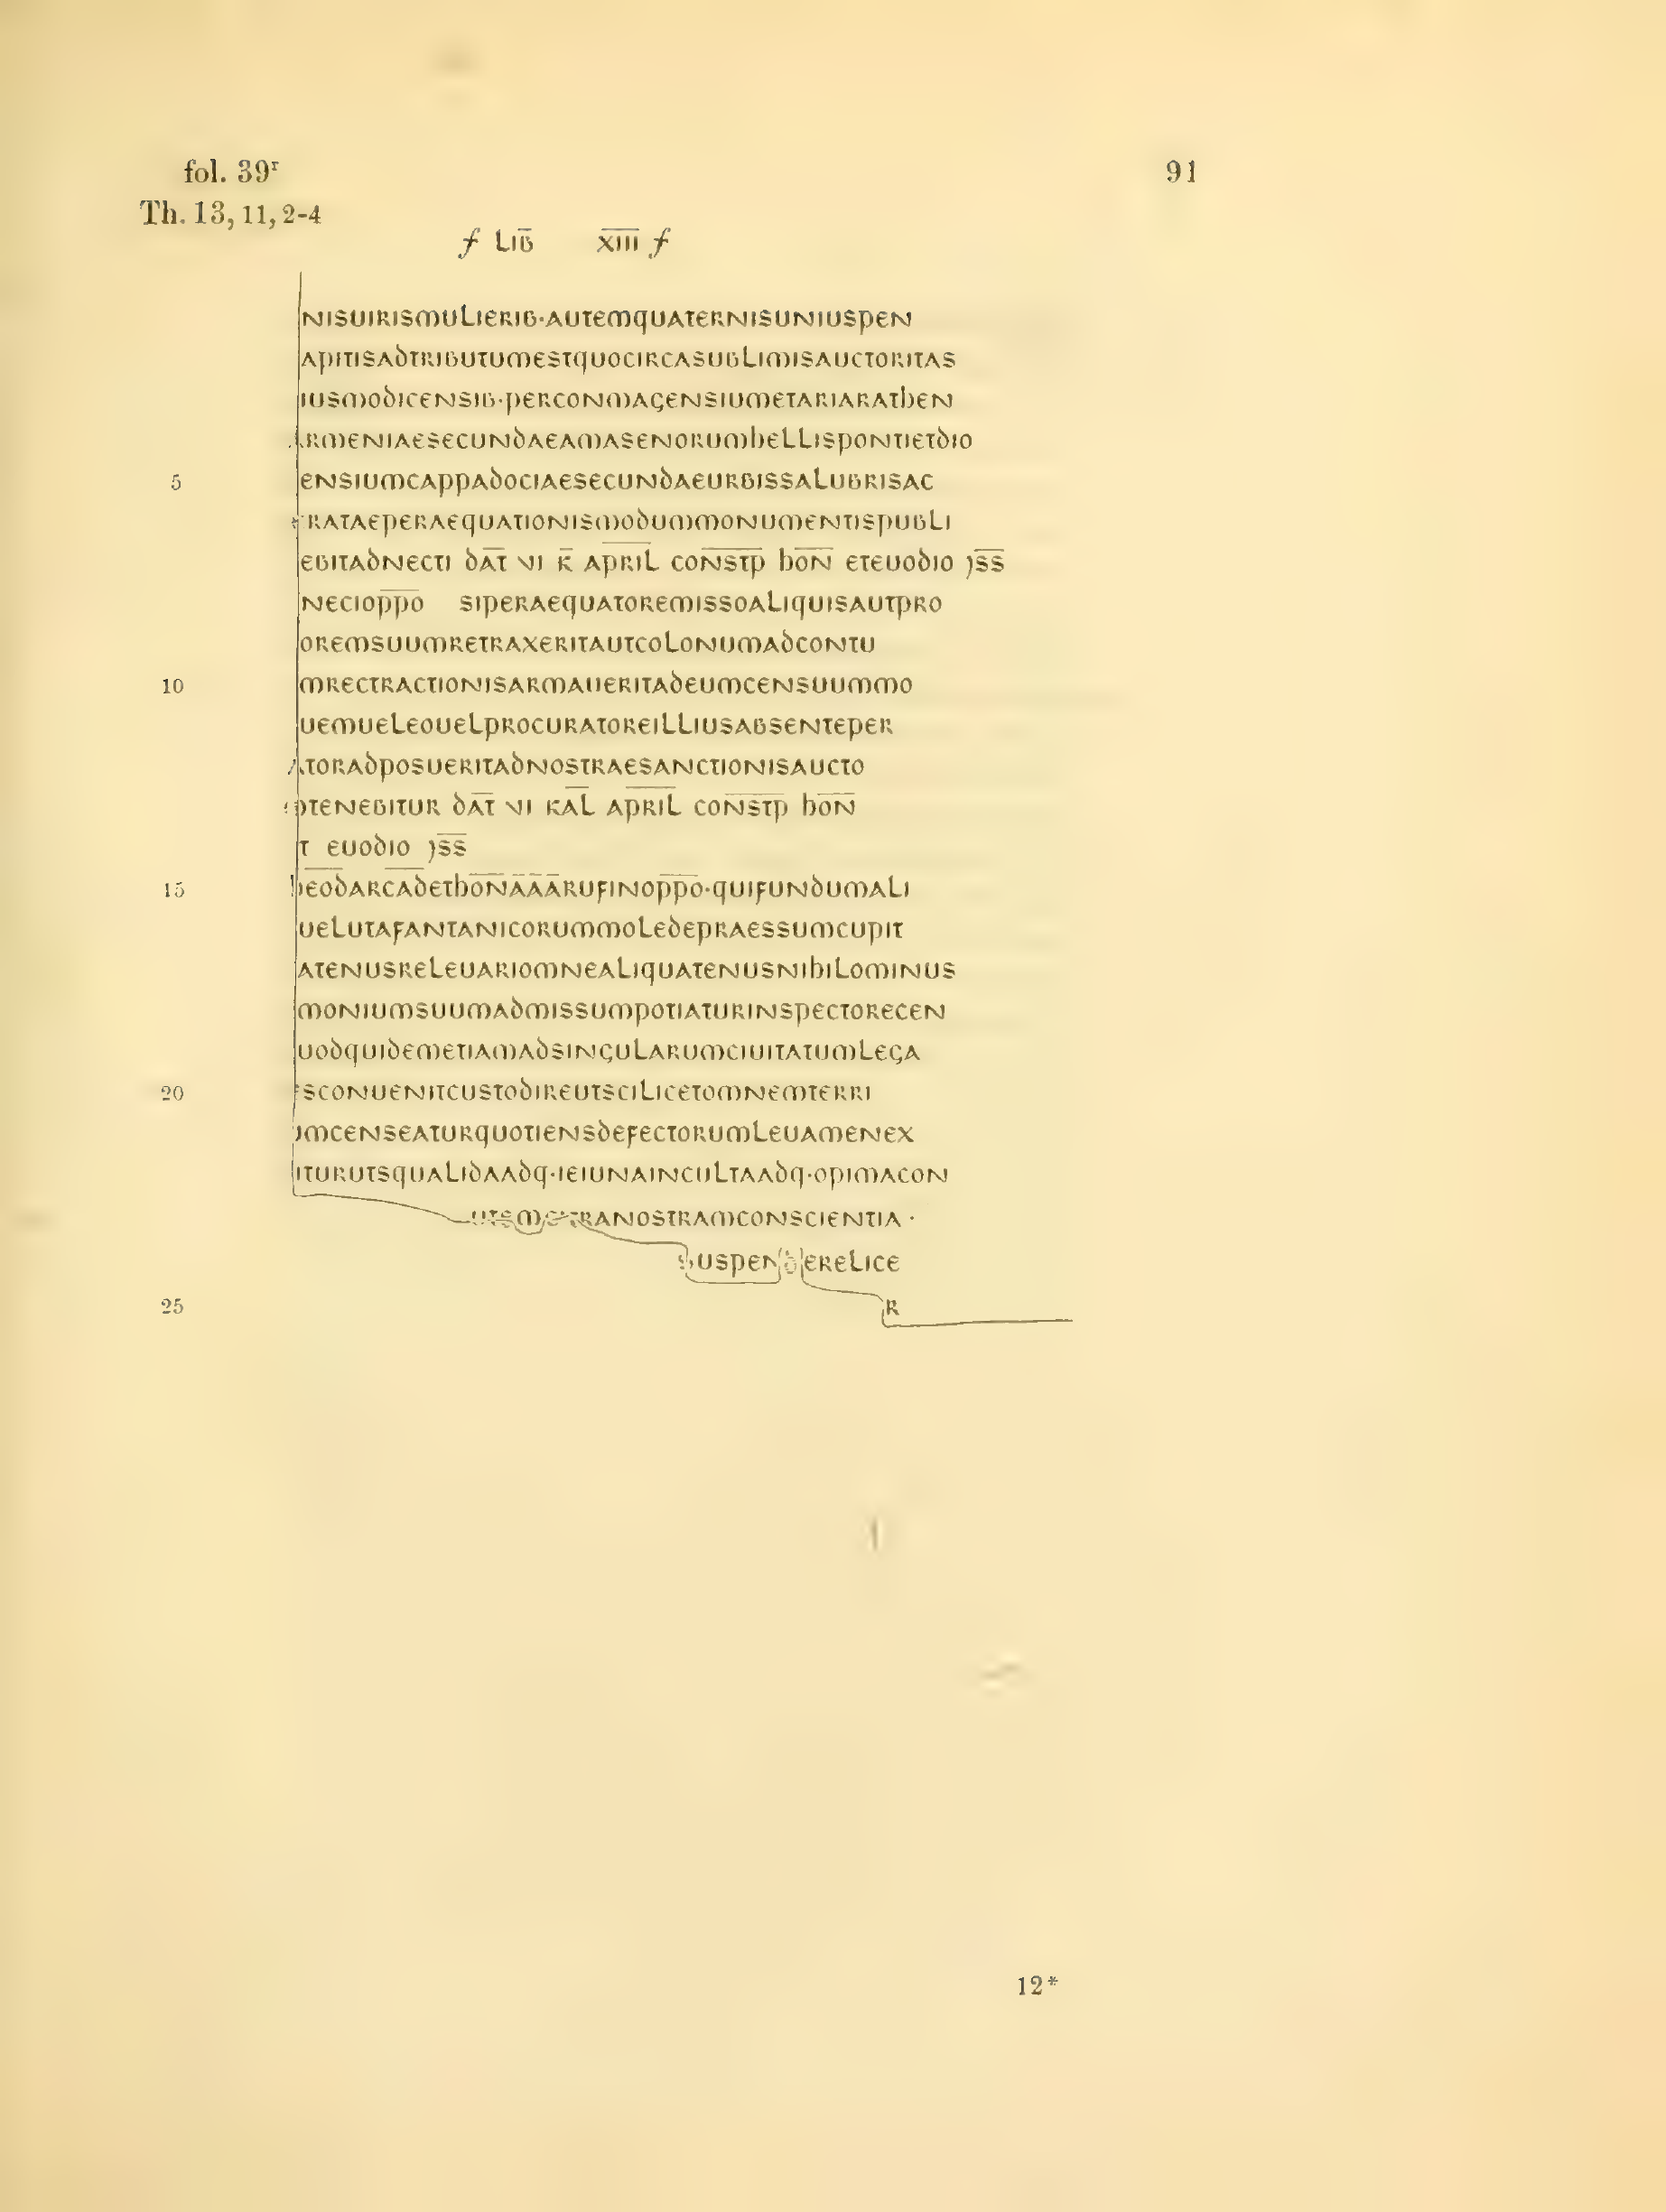 fol. 39ʳ
91
Th. 13, 11, 2-4
f LIB̅ X̅I̅I̅I̅ f
NISUIRISMULIERIB·AUTEMQUATERNISUNIUSPEN
APITISADTRIBUTUMESTQUOCIRCASUBLIMISAUCTORITAS
IUSMODICENSIB·PERCONMAGENSIUMETARIARATHEN
ARMENIAESECUNDAEAMASENORUMHELLISPONTIETDIO
5 ENSIUMCAPPADOCIAESECUNDAEURBISSALUBRISAC
RATAEPERAEQUATIONISMODUMMONUMENTISPUBLI
EBITADNECTI DA̅T̅ VI K̅ AP̅R̅I̅L̅ CON̅S̅T̅P̅ HO̅N̅ ETEUODIO )S̅S̅
NECIOP̅P̅O̅ SIPERAEQUATOREMISSOALIQUISAUTPRO
OREMSUUMRETRAXERITAUTCOLONUMADCONTU
10 MRECTRACTIONISARMAUERITADEUMCENSUUMMO
UEMUELEOUELPROCURATOREILLIUSABSENTEPER
ATORADPOSUERITADNOSTRAESANCTIONISAUCTO
OTENEBITUR DA̅T̅ VI KA̅L̅ AP̅R̅I̅L̅ CON̅S̅T̅P̅ HO̅N̅
T EUODIO )S̅S̅
15 HE̅O̅D̅ARC̅A̅D̅ETHO̅N̅A̅A̅A̅RUFINOP̅P̅O̅·QUIFUNDUMALI
UELUTAFANTANICORUMMOLEDEPRAESSUMCUPIT
ATENUSRELEUARIOMNEALIQUATENUSNIHILOMINUS
MONIUMSUUMADMISSUMPOTIATURINSPECTORECEN
UODQUIDEMETIAMADSINGULARUMCIUITATUMLEGA
20 SCONUENITCUSTODIREUTSCILICETOMNEMTERRI
UMCENSEATURQUOTIENSDEFECTORUMLEUAMENEX
ITURUTSQUALIDAADQ·IEIUNAINCULTAADQ·OPIMACON
RANOSTRAMCONSCIENTIA·
SUSPENDERELICE
25 R
12*